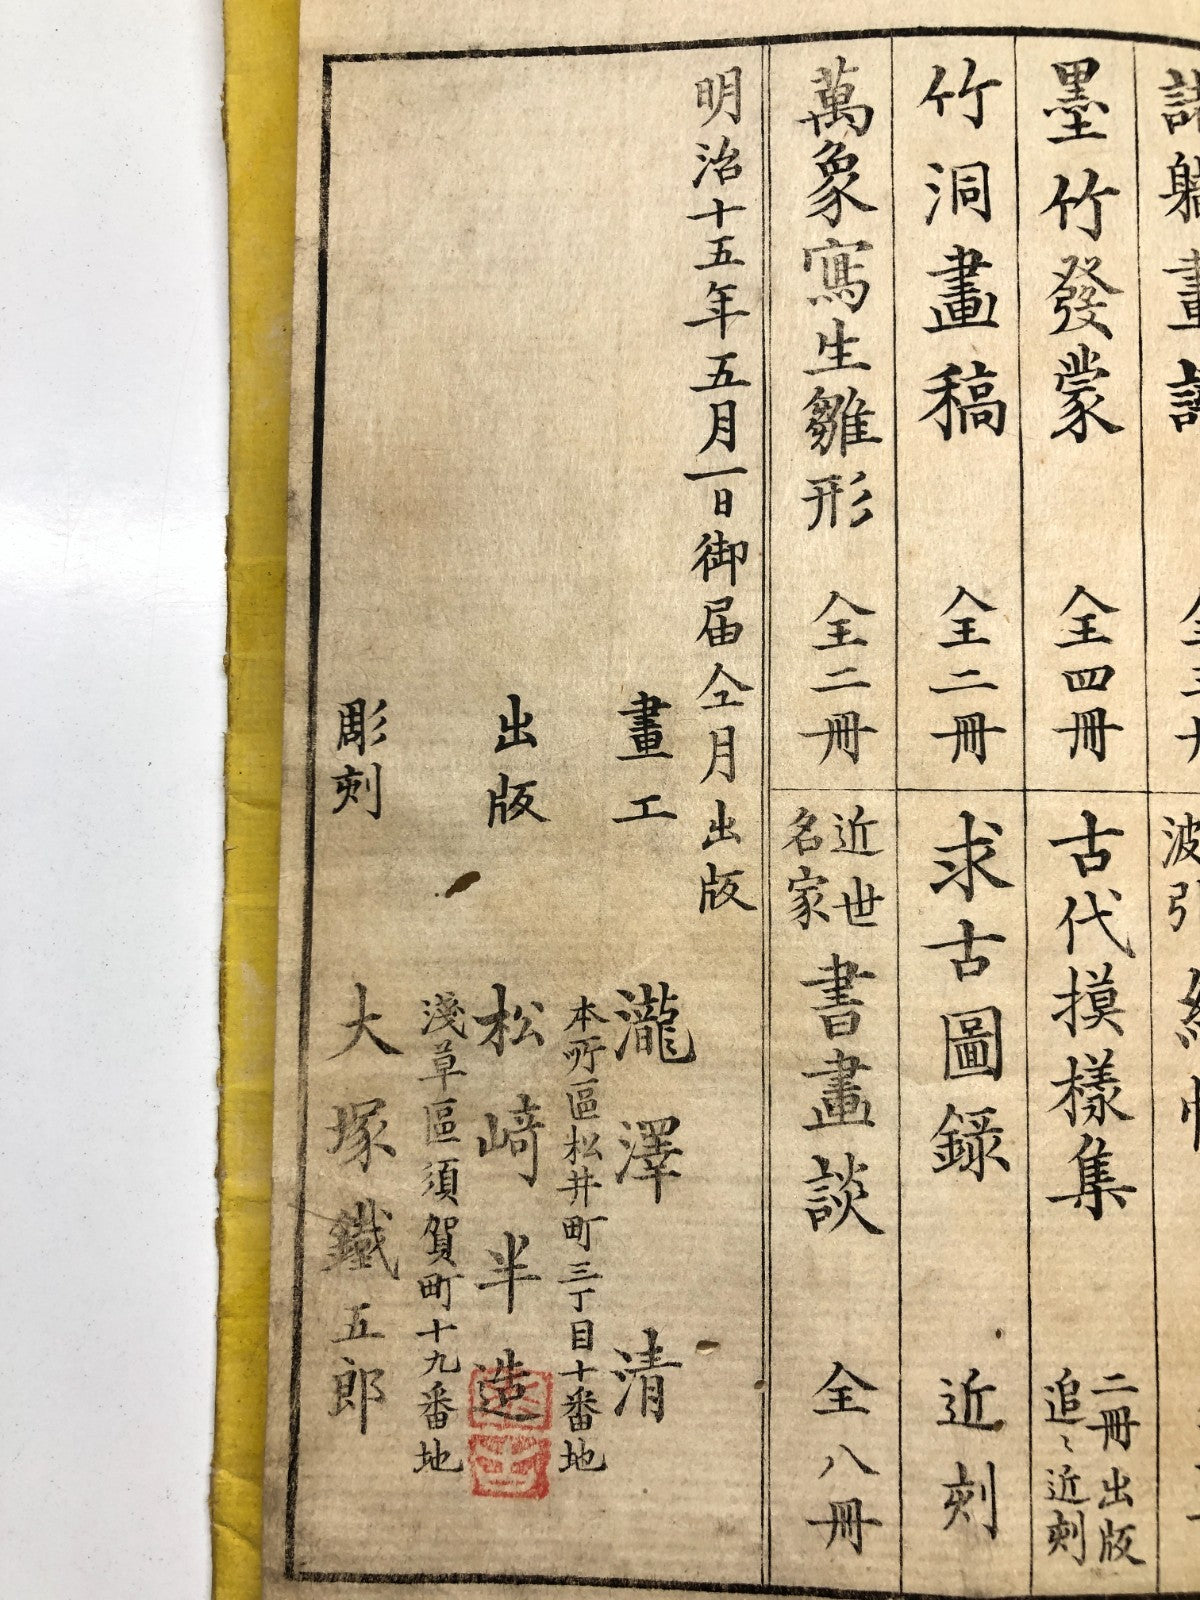 墨竹發蒙 全四冊
古代摸樣集 二冊出版 追々近刻
竹洞畫稿 全二冊
求古圖錄 近刻
萬象寫生雛形 全二冊
近世名家 書畫談 全八冊
明治十五年五月一日御届仝月出版
畫工 瀧澤清
本所區松井町三丁目十番地
出版 松﨑半造
淺草區須賀町十九番地
彫刻 大塚鐵五郎